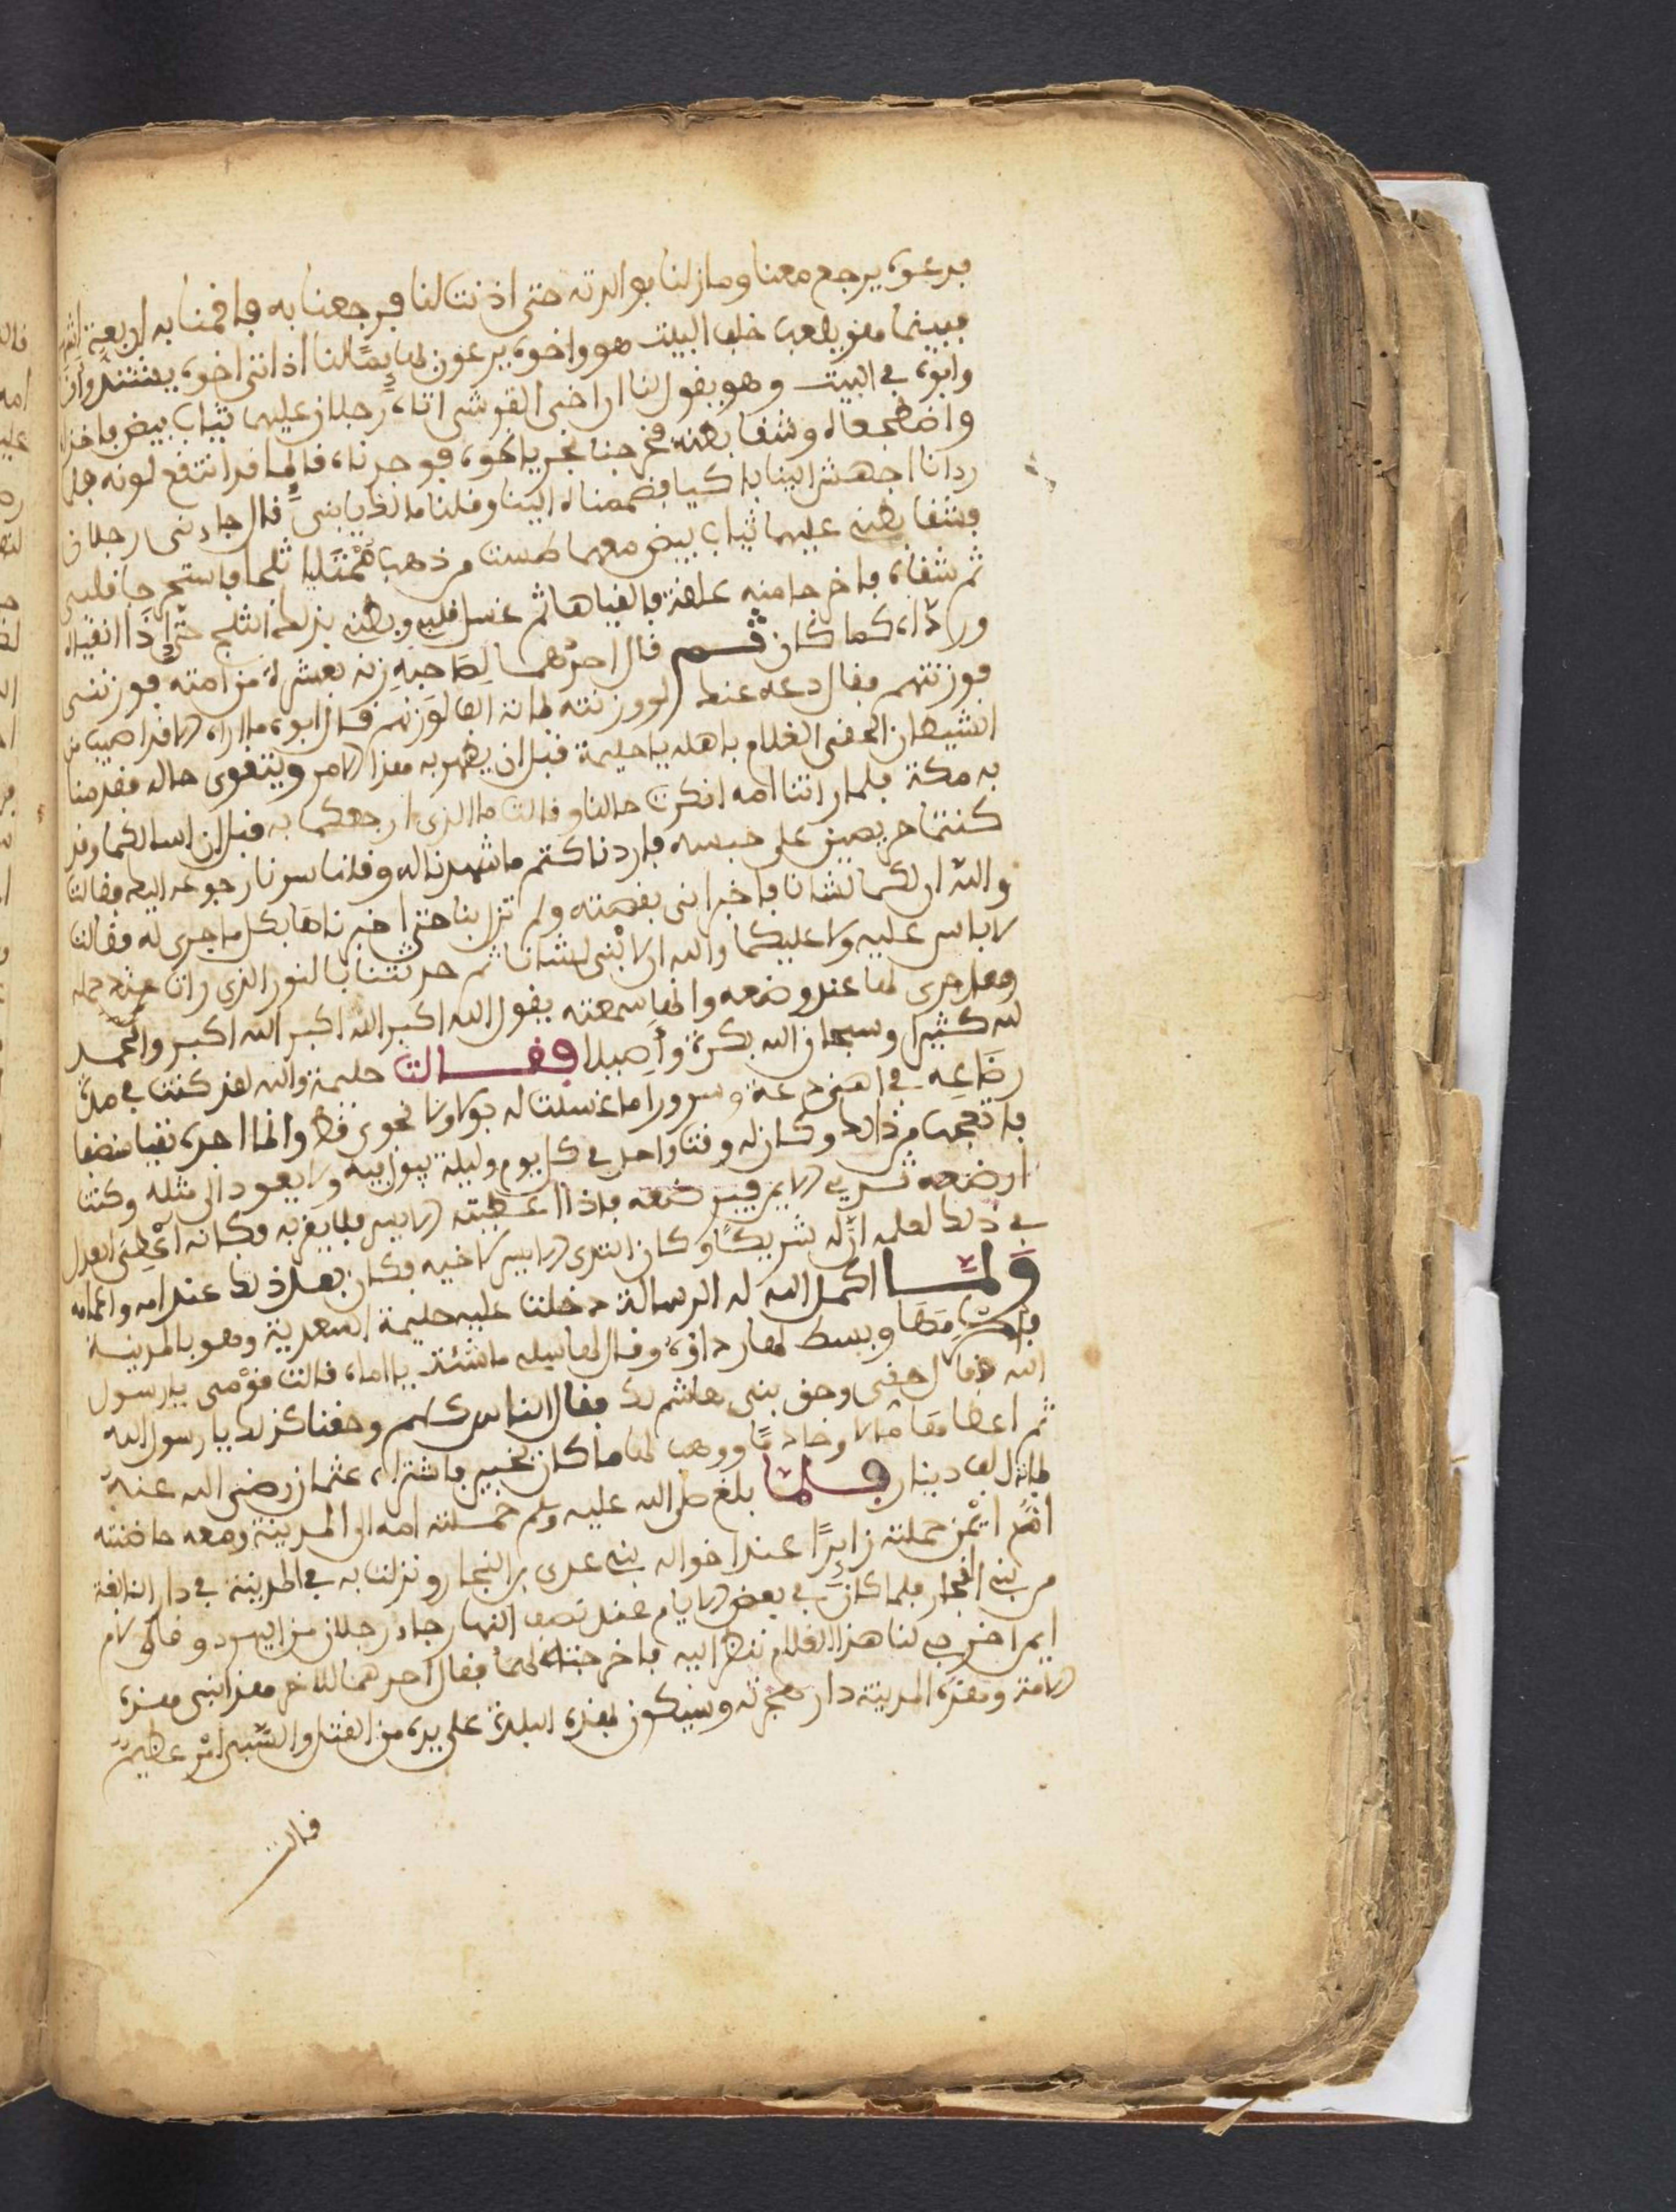 فدعوه يرجع معنا وما زلنا بوالدته حتى اذنت لنا فرجعنا به فاقمنا به اربعة اشهر
فبينما هو يلعب خلف البيت هو واخوه يرعون بهمًا لنا اذ اتى اخوه يشتد وانا
وابوه في البيت وهو يقول لنا ان اخى القرشى اتاه رجلان عليهما ثياب بيض فاخذاه
واضطجعاه وشقا بطنه فخرجنا نجري نحوه فوجدناه قائما قد انتقع لونه فلما
ردانا اجهش الينا باكيا فضممناه الينا وقلنا مالك يا بنىَّ قال جاءنى رجلان
عليهما ثياب بيض معهما طست من ذهب ممتليا ثلجا فاستخرجا قلبى وشقا بطنه
ثم شقاه فاخرجا منه علقة فالقياها ثم غسلا قلبى وبطنى بذلك الثلج حتى اذا انقياه
ورداه كما كان ثــم قال احدهما لصَاحبهِ زنه بعشرة من امته فوزننى
فوزنتهم فقال دعه عنك لو وزنته بامة الف لوزنهم قال ابوه ما اراه الا قد اصيب من
الشيطان الحقى الغلام باهله يا حليمة قبل ان يظهر به هذا الامر ويتقوى حاله فقدمنا
به مكة فلما راتنا امه انكرت حالنا وقالت ما الذى ارجعكما به قبل ان اسالكما وقد
كنتما حريصين على حبسه فاردنا كتم ما شهدنا له وقلنا سرنا رجوعه اليك فقالت
والله ان لكما لشانا فاخبرانى بقصته ولم تزل بنا حتى اخبرناها بكل ما جرى له فقالت
لا باس عليه ولا عليكما والله ان لابْنى لشانا ثم حدثتنا بالنور الذي رات عند حمله
وما جرى لها عند وضعه وانها سمعته يقول الله اكبر الله اكبر الله اكبر والحمد
لله كثيرا وسبحان الله بكرة وأصيلا فقــالت حليمة والله لقد كنت في مدة
رضَاعِه في اهنى دعة وسرور ما غسلت له بولا ولا نجوى قط وانما اجده نقيا منضفا
فاتعجب من ذالك وكان له وقت واحد في كل يوم وليلة يبول فيه ولا يعود الى مثله وكنت
ارضعه ثديى الايمن فيرضعه فاذا اعطيته الايسر فلا يقربه فكانه اعْطِى العدل
في ذلك لعلمه ان له شريكًا وكان الثدي الايسر لاخيه فكان بعد ذلك عند امه واعمامه
وَلمَّــا اكمل الله له الرسالة دخلت عليه حليمة السعدية وهو بالمدينة
فاكرَمَهَا وبسط لها رداؤه وقال لها سليه ما شئت يا اماه قالت قوْمى يا رسول
الله قال حقى وحق بنى هاشم لك فقال الناس كلهم وحقنا كذلك يا رسول الله
ثم اعطاهَا مالا وخادمًا ووهب لها ما كان بخيبر فاشتراه عثمان رضى الله عنه
بمائة الف دينار فــلما بلغ صلى الله عليه وسلم حملته امه الى المدينة ومعه حاضنته
امُّ ايْمن حملته زايرًا عند اخواله بني عدى بن النجار ونزلت به في المدينة في دار النابغة
من بني النجار فلما كان في بعض الايام عند نصف النهار جاء رجلان من اليهود وقالا لام
ايمن اخرجي لنا هذا الغلام ننظر اليه فاخرجته لهما فقال احدهما للاخر هذا نبى هذه
الامة وهذه المدينة دار هجرته وسيكون بهذه البلدة على يده من القتل والسَّبى امْر عظيم
قالت